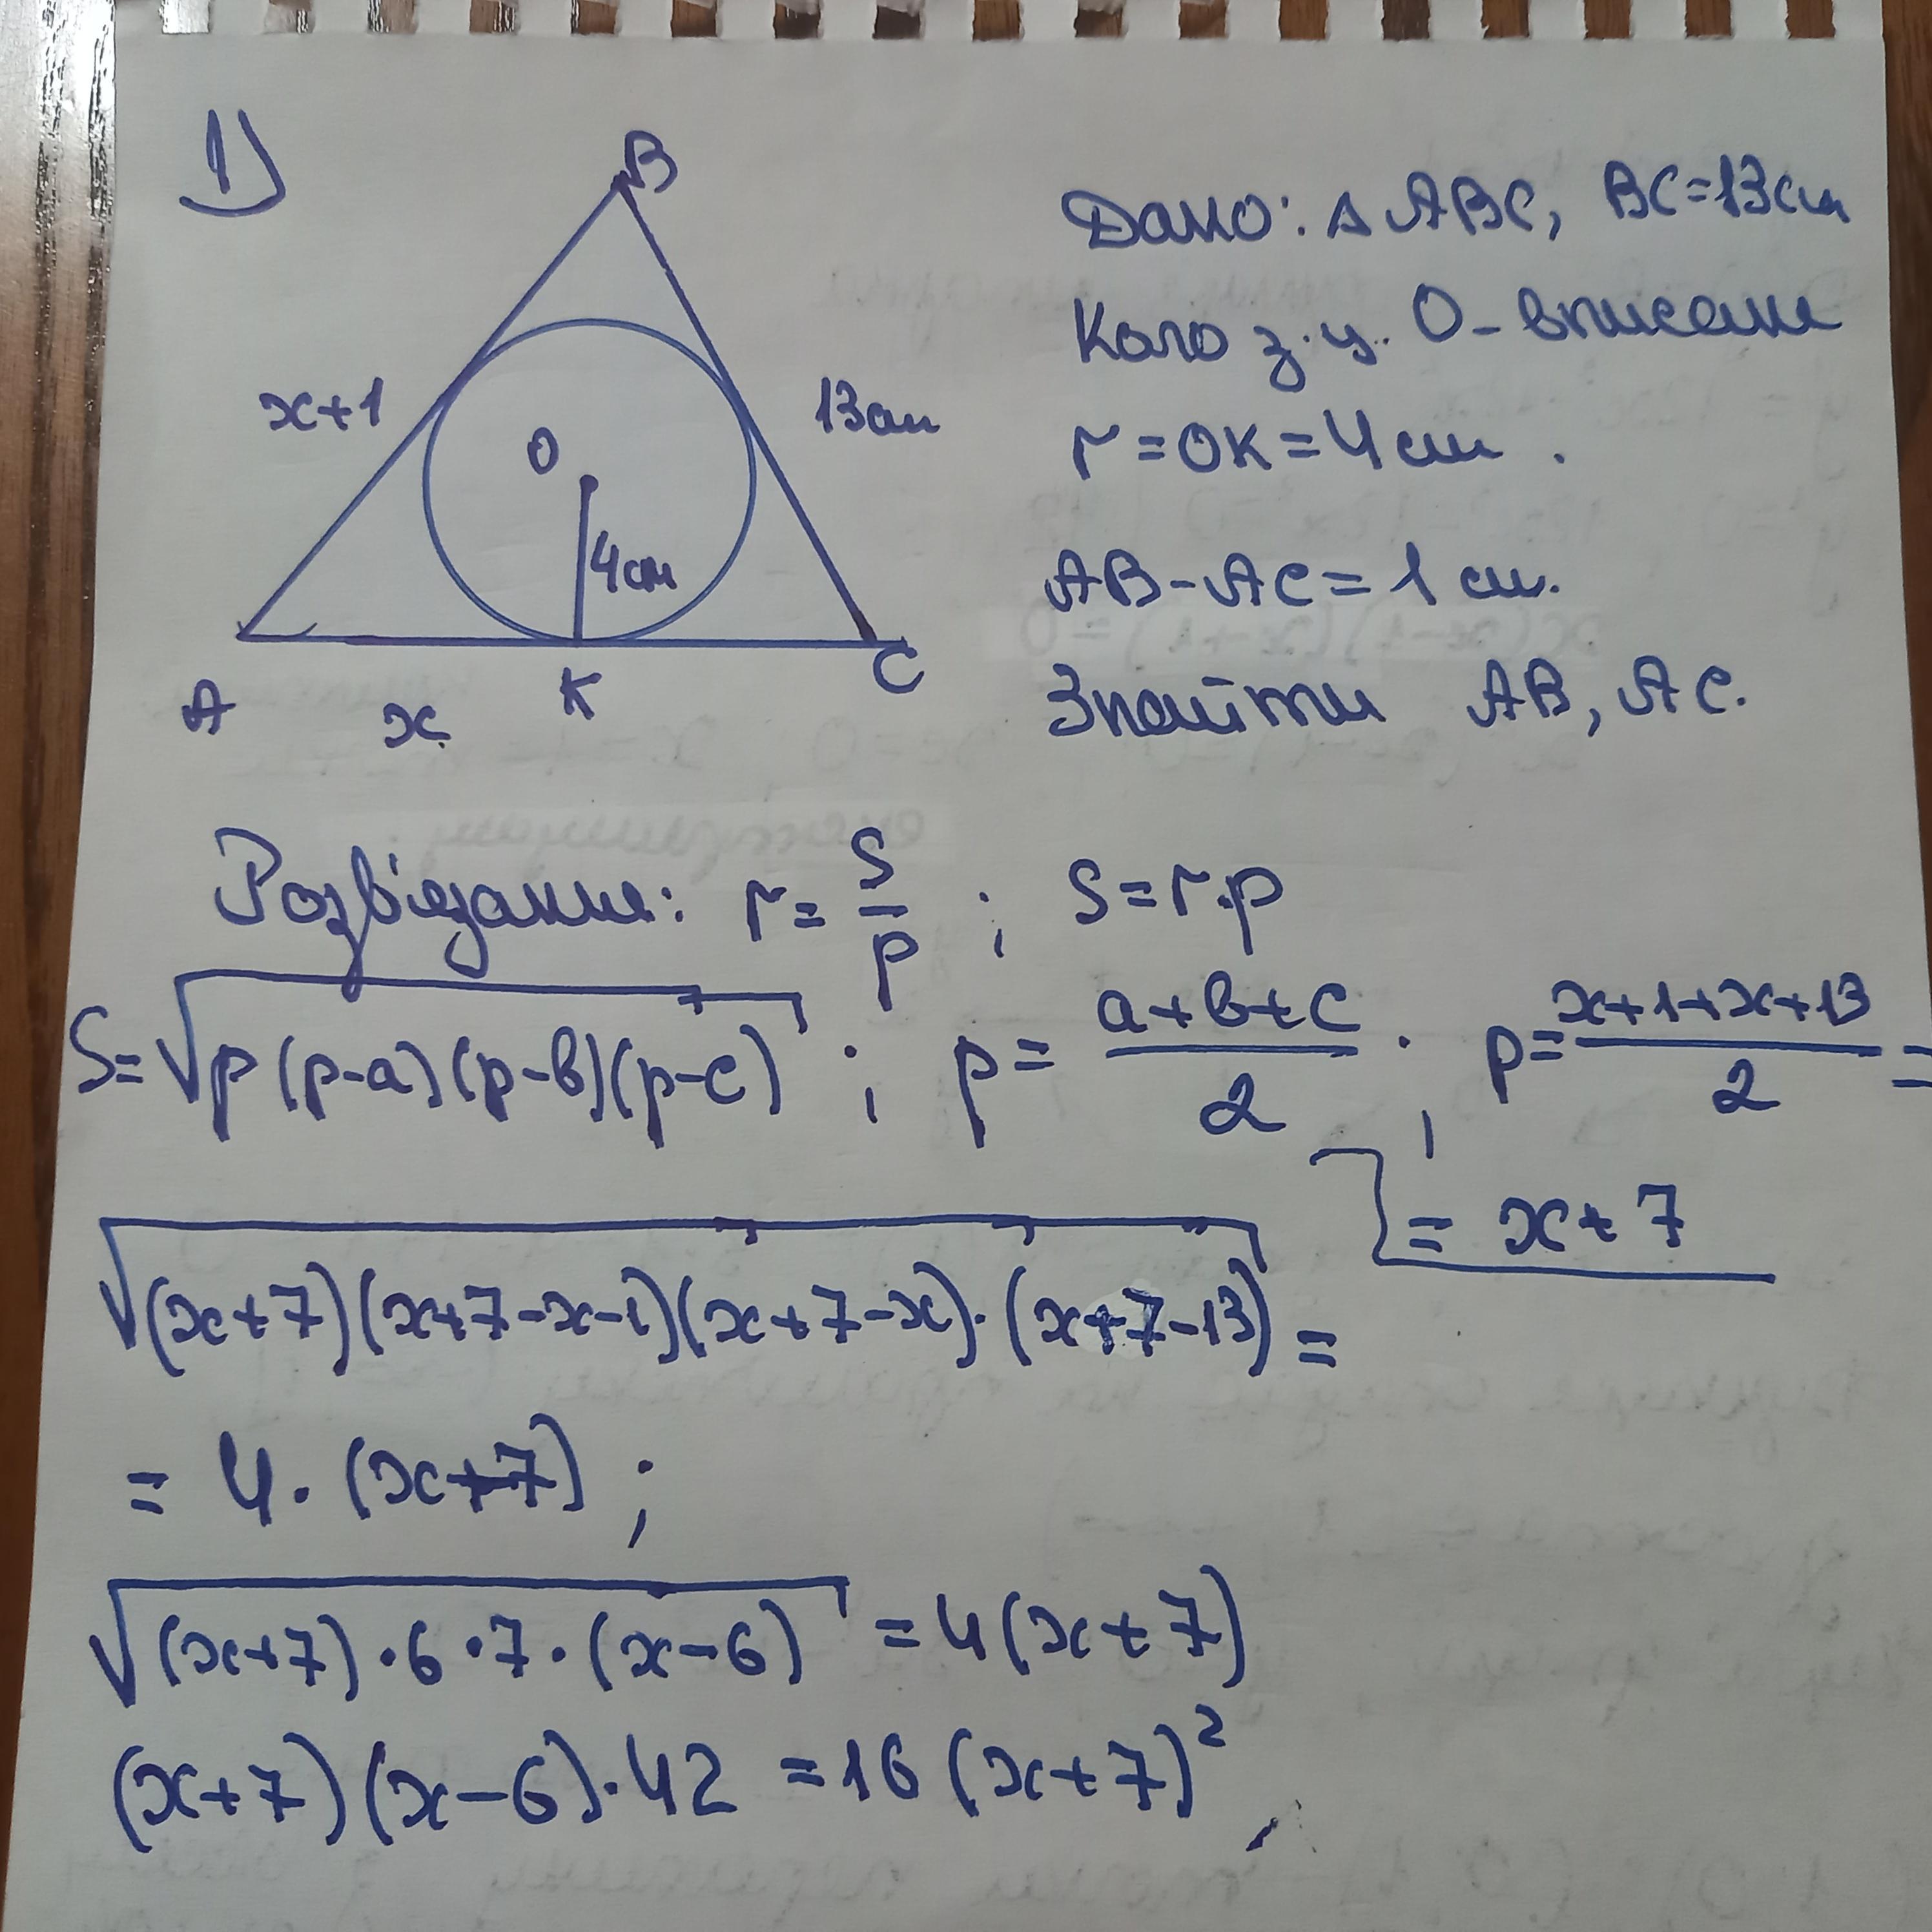 1)
B
Дано: △ ABC, BC=13см
Коло з ц. O - вписане
x+1
13см
O
r = OK = 4 см.
4см
AB - AC = 1 см.
A
x
K
C
Знайти AB, AC.
Розв'язання: r = S/p ; S = r·p
S = √(p (p-a)(p-b)(p-c)) ; p = (a+b+c)/2 ; p = (x+1+x+13)/2 =
= x+7
√((x+7)(x+7-x-1)(x+7-x)·(x+7-13)) =
= 4·(x+7) ;
√((x+7)·6·7·(x-6)) = 4(x+7)
(x+7)(x-6)·42 = 16(x+7)²,